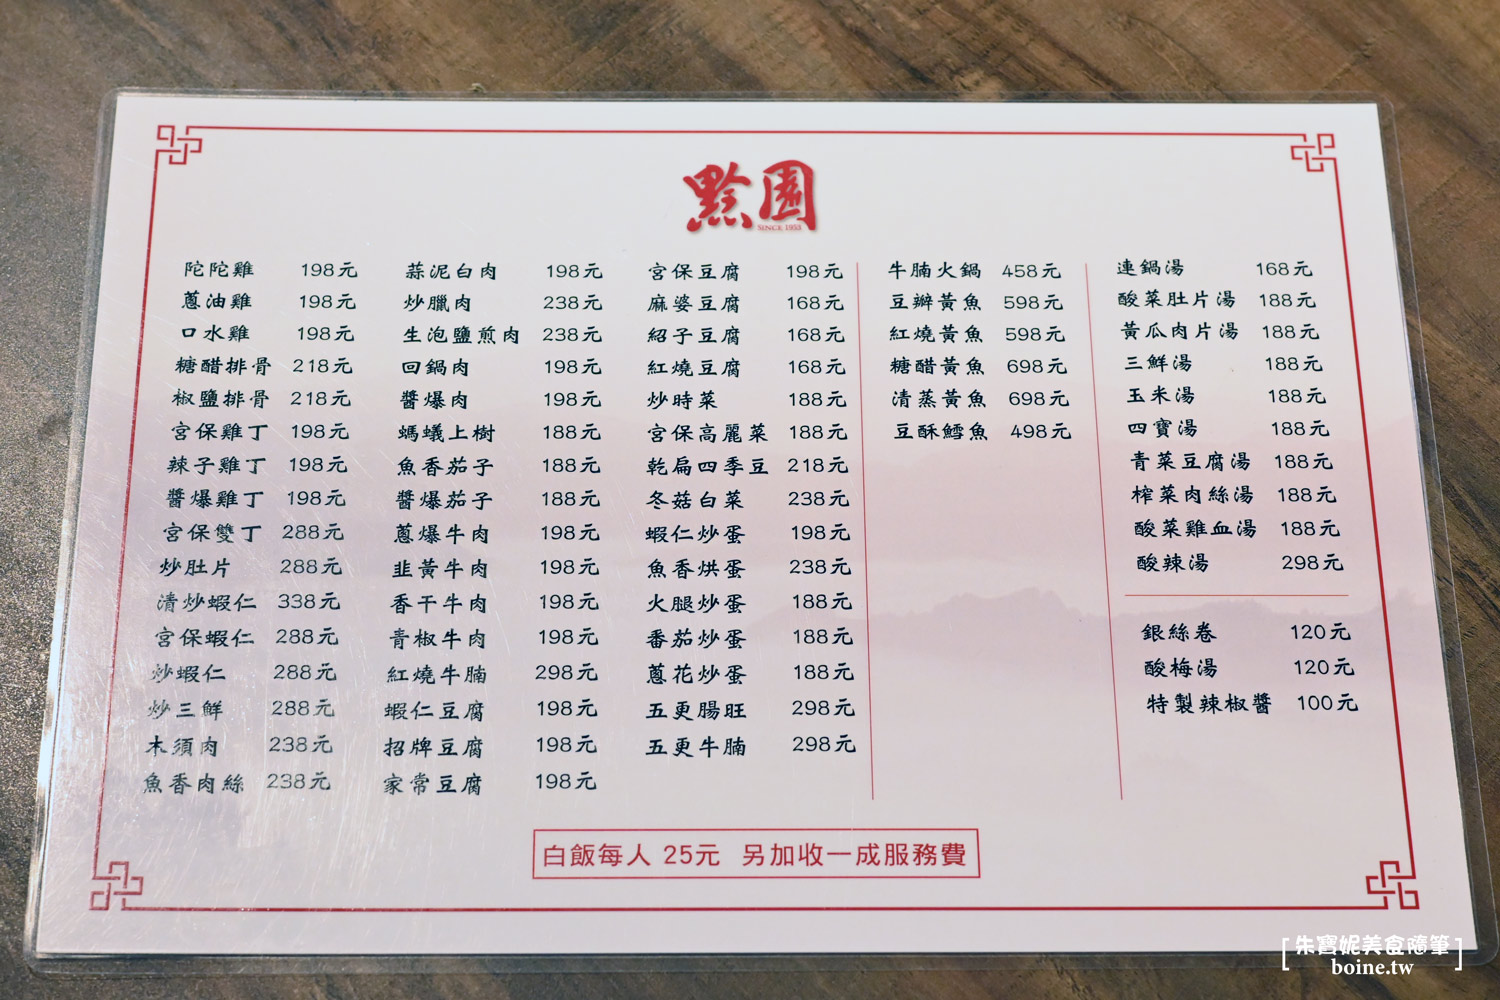 黔園
SINCE 1953
陀陀雞 198元
蔥油雞 198元
口水雞 198元
糖醋排骨 218元
椒鹽排骨 218元
宮保雞丁 198元
辣子雞丁 198元
醬爆雞丁 198元
宮保雙丁 288元
炒肚片 288元
清炒蝦仁 338元
宮保蝦仁 288元
炒蝦仁 288元
炒三鮮 288元
木須肉 238元
魚香肉絲 238元
蒜泥白肉 198元
炒臘肉 238元
生泡鹽煎肉 238元
回鍋肉 198元
醬爆肉 198元
螞蟻上樹 188元
魚香茄子 188元
醬爆茄子 188元
蔥爆牛肉 198元
韭黃牛肉 198元
香干牛肉 198元
青椒牛肉 198元
紅燒牛腩 298元
蝦仁豆腐 198元
招牌豆腐 198元
家常豆腐 198元
宮保豆腐 198元
麻婆豆腐 168元
紹子豆腐 168元
紅燒豆腐 168元
炒時菜 188元
宮保高麗菜 188元
乾扁四季豆 218元
冬菇白菜 238元
蝦仁炒蛋 198元
魚香烘蛋 238元
火腿炒蛋 188元
番茄炒蛋 188元
蔥花炒蛋 188元
五更腸旺 298元
五更牛腩 298元
牛腩火鍋 458元
豆瓣黃魚 598元
紅燒黃魚 598元
糖醋黃魚 698元
清蒸黃魚 698元
豆酥鱈魚 498元
連鍋湯 168元
酸菜肚片湯 188元
黃瓜肉片湯 188元
三鮮湯 188元
玉米湯 188元
四寶湯 188元
青菜豆腐湯 188元
榨菜肉絲湯 188元
酸菜雞血湯 188元
酸辣湯 298元
銀絲卷 120元
酸梅湯 120元
特製辣椒醬 100元
白飯每人 25元 另加收一成服務費
朱寶妮美食隨筆
boine.tw